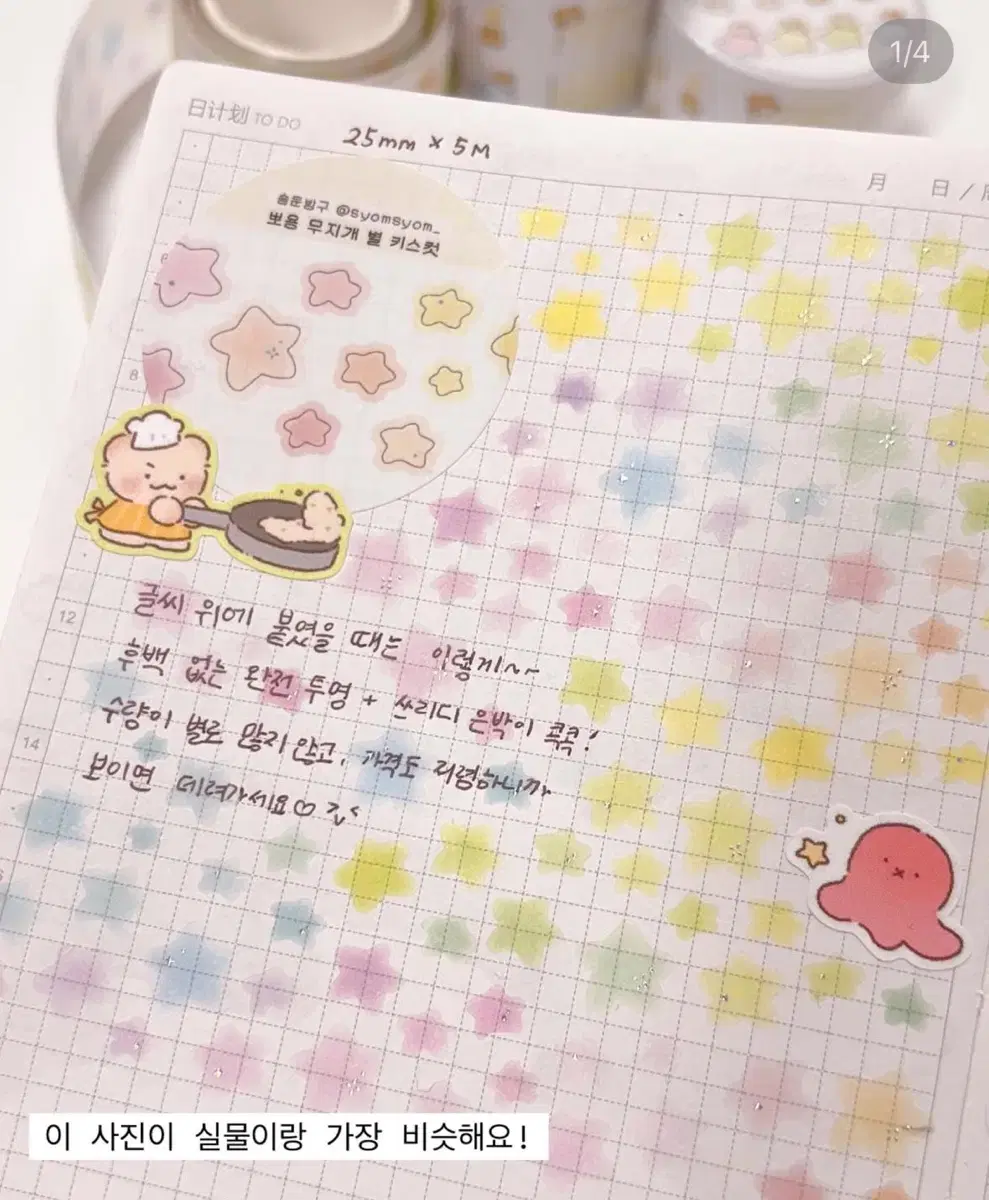 1/4
日计划 TO DO
25mm × 5M
月 日 /
숌둔방구 @syomsyom_
뽀용 무지개 별 키스컷
8
글씨 위에 붙였을 때는 이렇게~~
후백 없는 완전 투명 + 쓰리디 은박이 콕콕!
수량이 별로 많지 않고, 가격도 저렴하니까
보이면 데려가세요♡
12
14
이 사진이 실물이랑 가장 비슷해요!